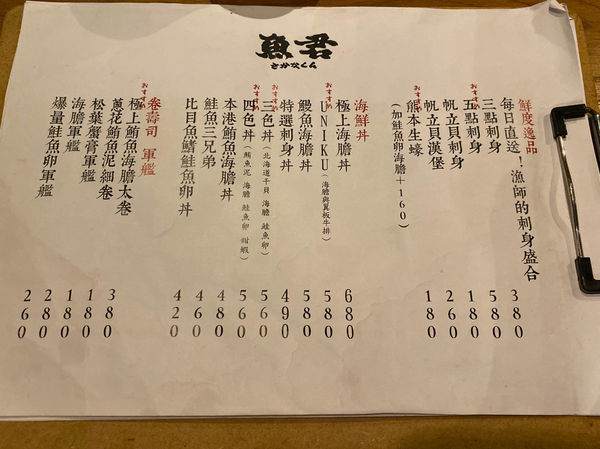 魚君
さかなくん
鮮度逸品
每日直送！漁師的刺身盛合
三點刺身 380
おすすめ
五點刺身 580
帆立貝刺身 180
帆立貝漢堡 260
おすすめ
熊本生蠔 180
(加鮭魚卵海膽+160)
海鮮丼
極上海膽丼 680
おすすめ
UNIKU (海膽與翼板牛排) 580
鰻魚海膽丼 580
特選刺身丼 490
おすすめ
三色丼 (北海道干貝 海膽 鮭魚卵) 560
おすすめ
四色丼 (鮪魚泥 海膽 鮭魚卵 甜蝦) 560
本港鮪魚海膽丼 480
鮭魚三兄弟 460
比目魚鰭鮭魚卵丼 420
卷壽司 軍艦
おすすめ
極上鮪魚海膽太卷 380
蔥花鮪魚泥細卷 180
松葉蟹膏軍艦 180
海膽軍艦 280
爆量鮭魚卵軍艦 260